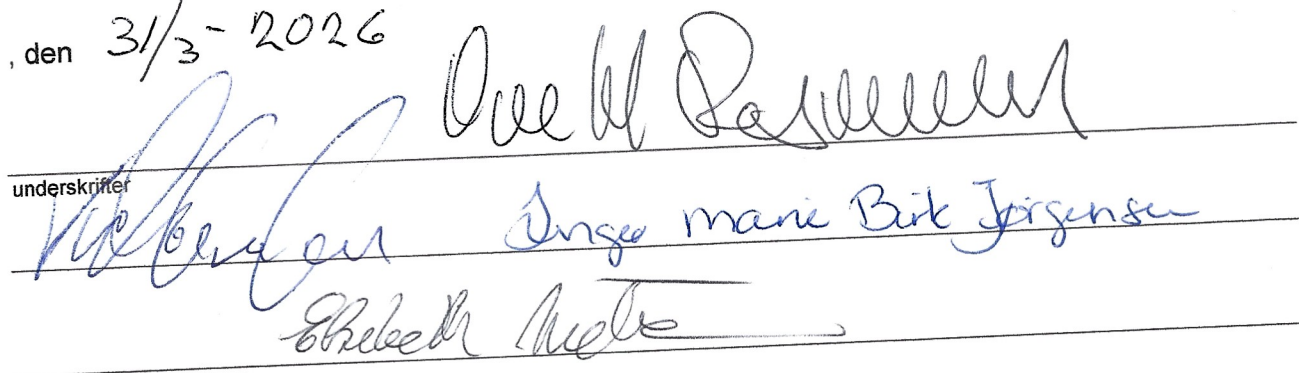 , den 31/3-2026
Ove M Rasmussen
underskrifter
Inger Marie Birk Jørgensen
Elsebeth